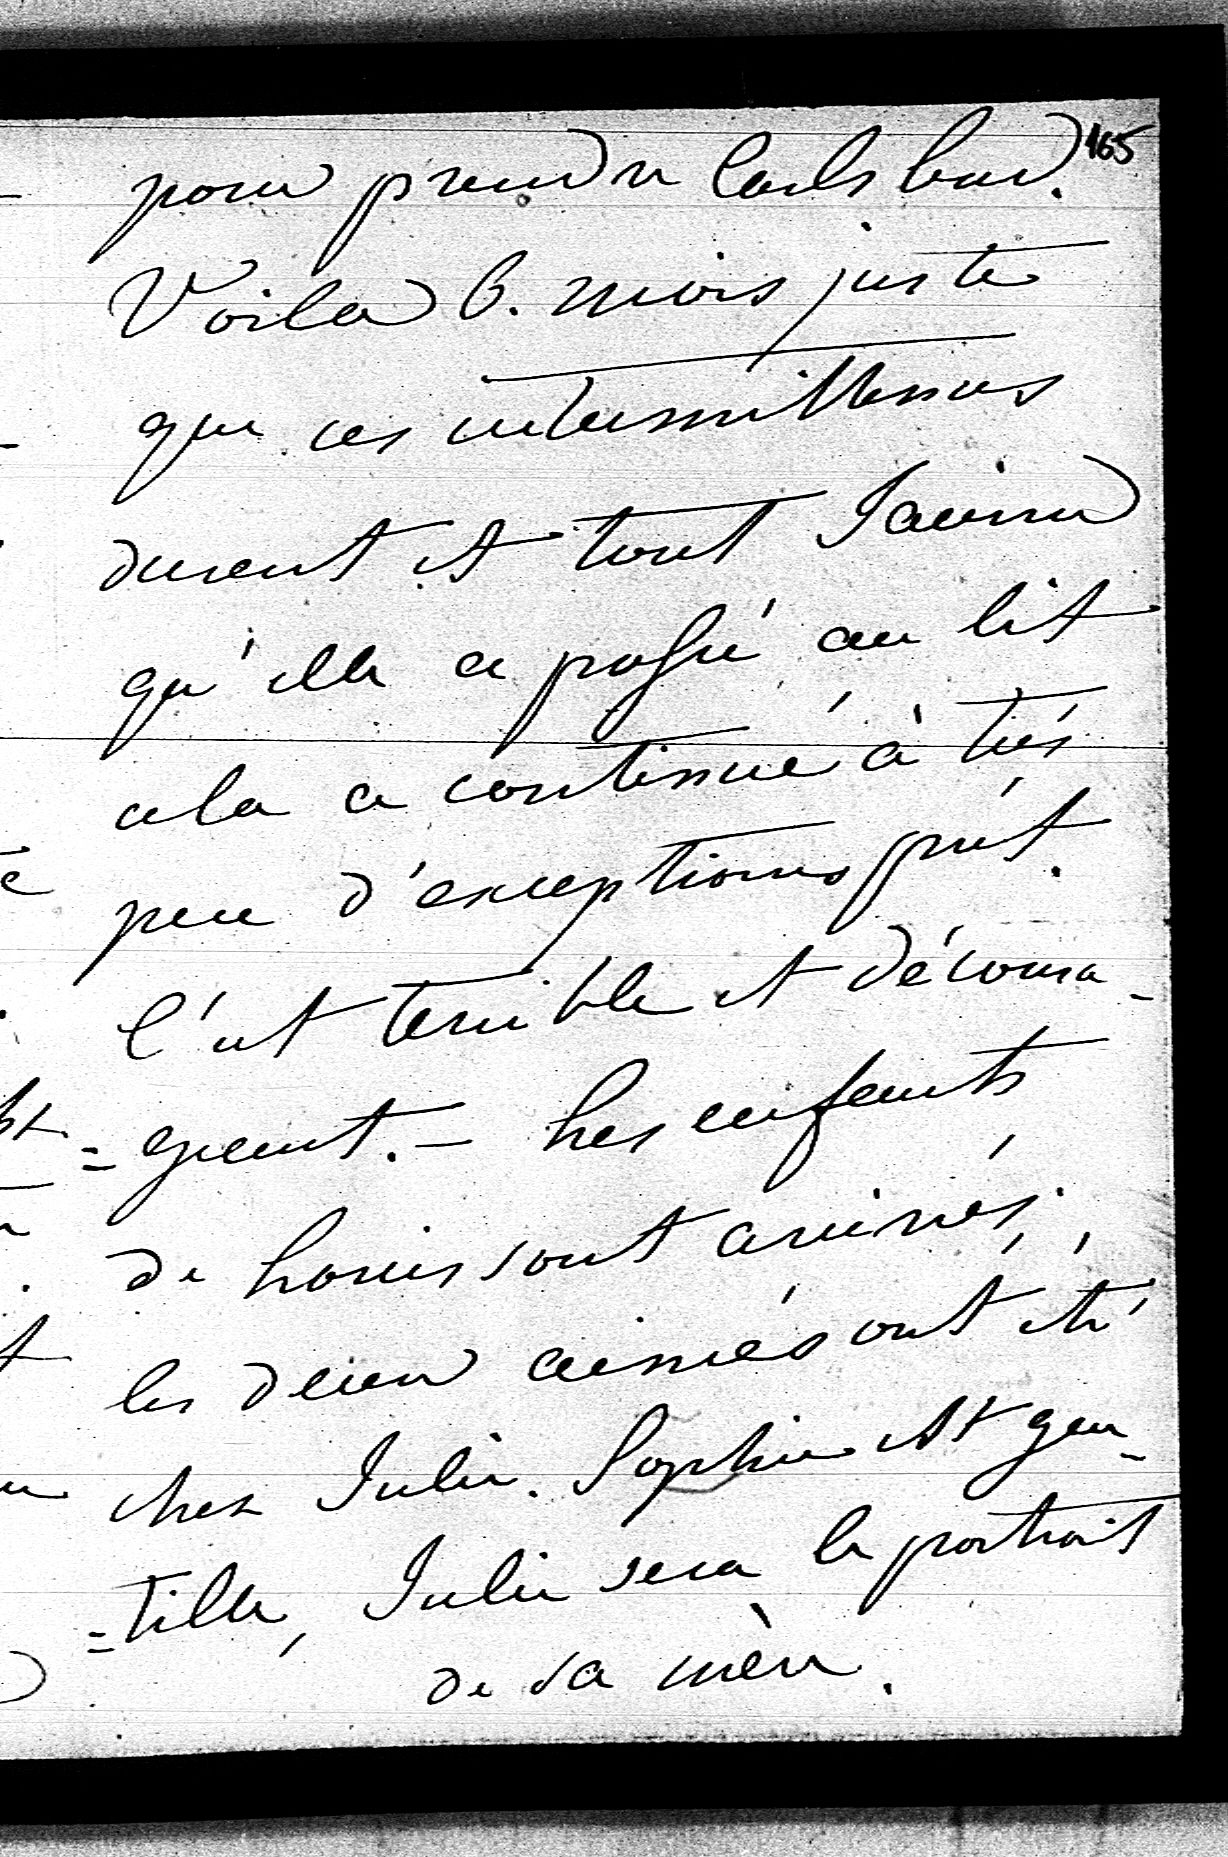 165
pour prendre Carlsbad.
Voila 6. mois juste
que ces intermittences
durent et tout
qu'elle a passé au lit
cela a continué à très
peu d'exceptions près.
C'est terrible et découra-
=geant. – Les enfants
de Louis sont arrivés,
les deux ainés ont été
chez Julie. Sophie est gen-
=tille, Julie sera le portrait
de sa mère.